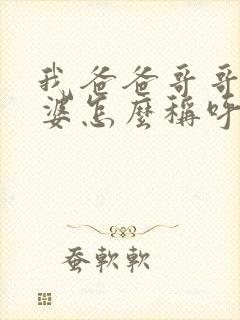 我爸爸哥哥
婆怎麼稱呼
蚕軟軟